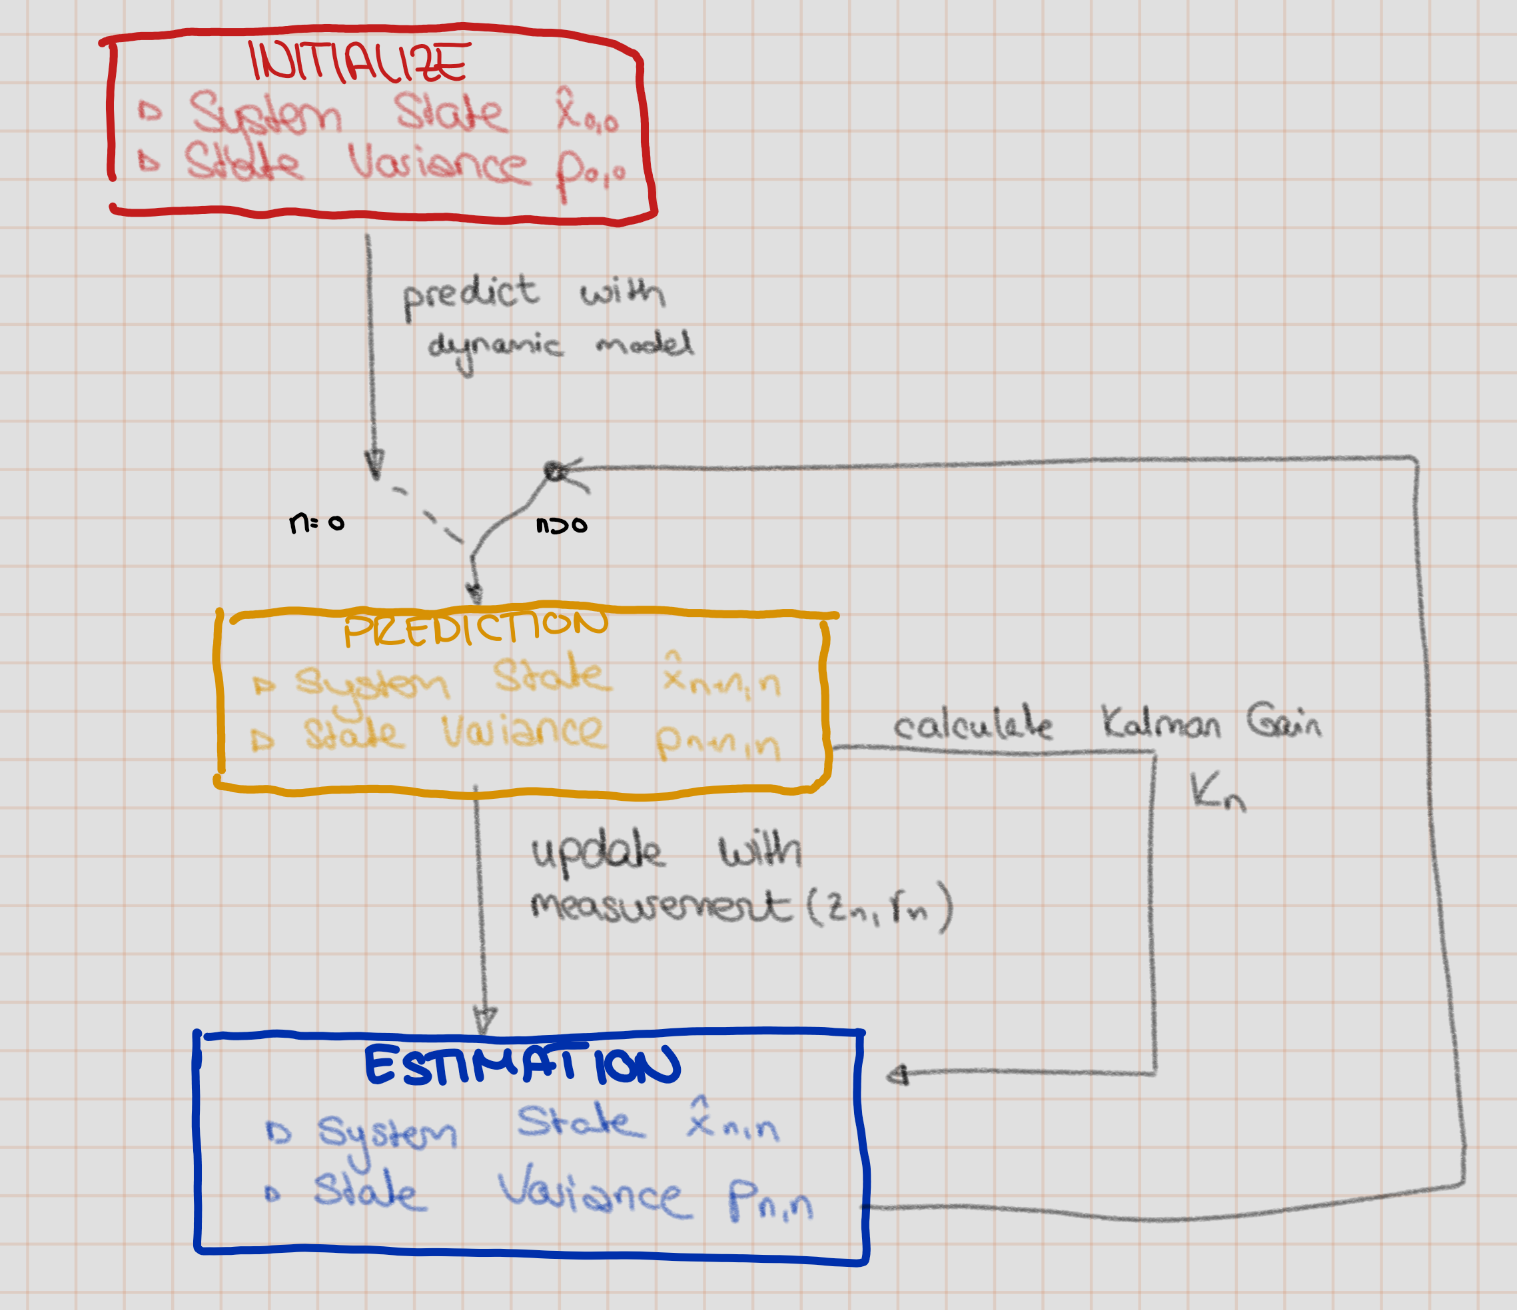 INITIALIZE
▷ System State x̂0,0
▷ State Variance p0,0
predict with
dynamic model
n=0
n>0
PREDICTION
▷ System State x̂n+n,n
▷ State Variance pn+n,n
calculate Kalman Gain
Kn
update with
measurement (zn, rn)
ESTIMATION
▷ System State x̂n,n
▷ State Variance pn,n